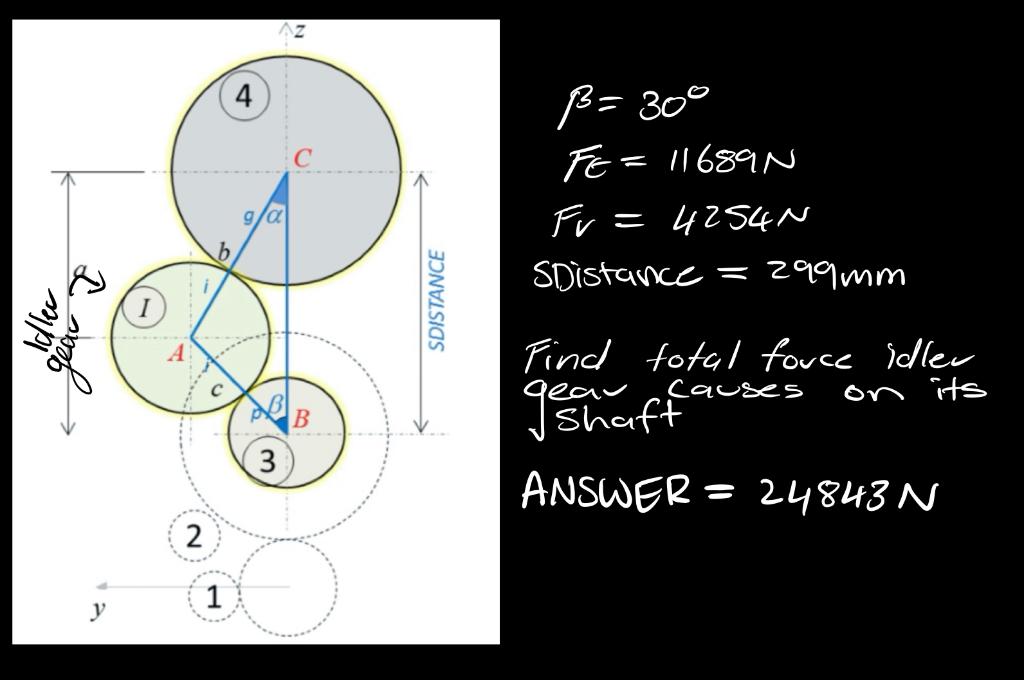 z
4
C
g
α
b
i
I
Idler
gear
a
SDISTANCE
A
r
c
p
β
B
3
2
1
y
β = 30°
FE = 11689N
Fr = 4254N
SDistance = 299mm
Find total force idler
gear causes on its
shaft
ANSWER = 24843 N